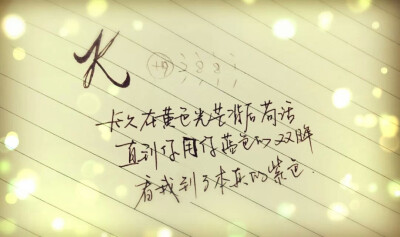 K
长久在黄色光芒背后苟活
直到你用你蓝色的双眸
看我到了本真的紫色